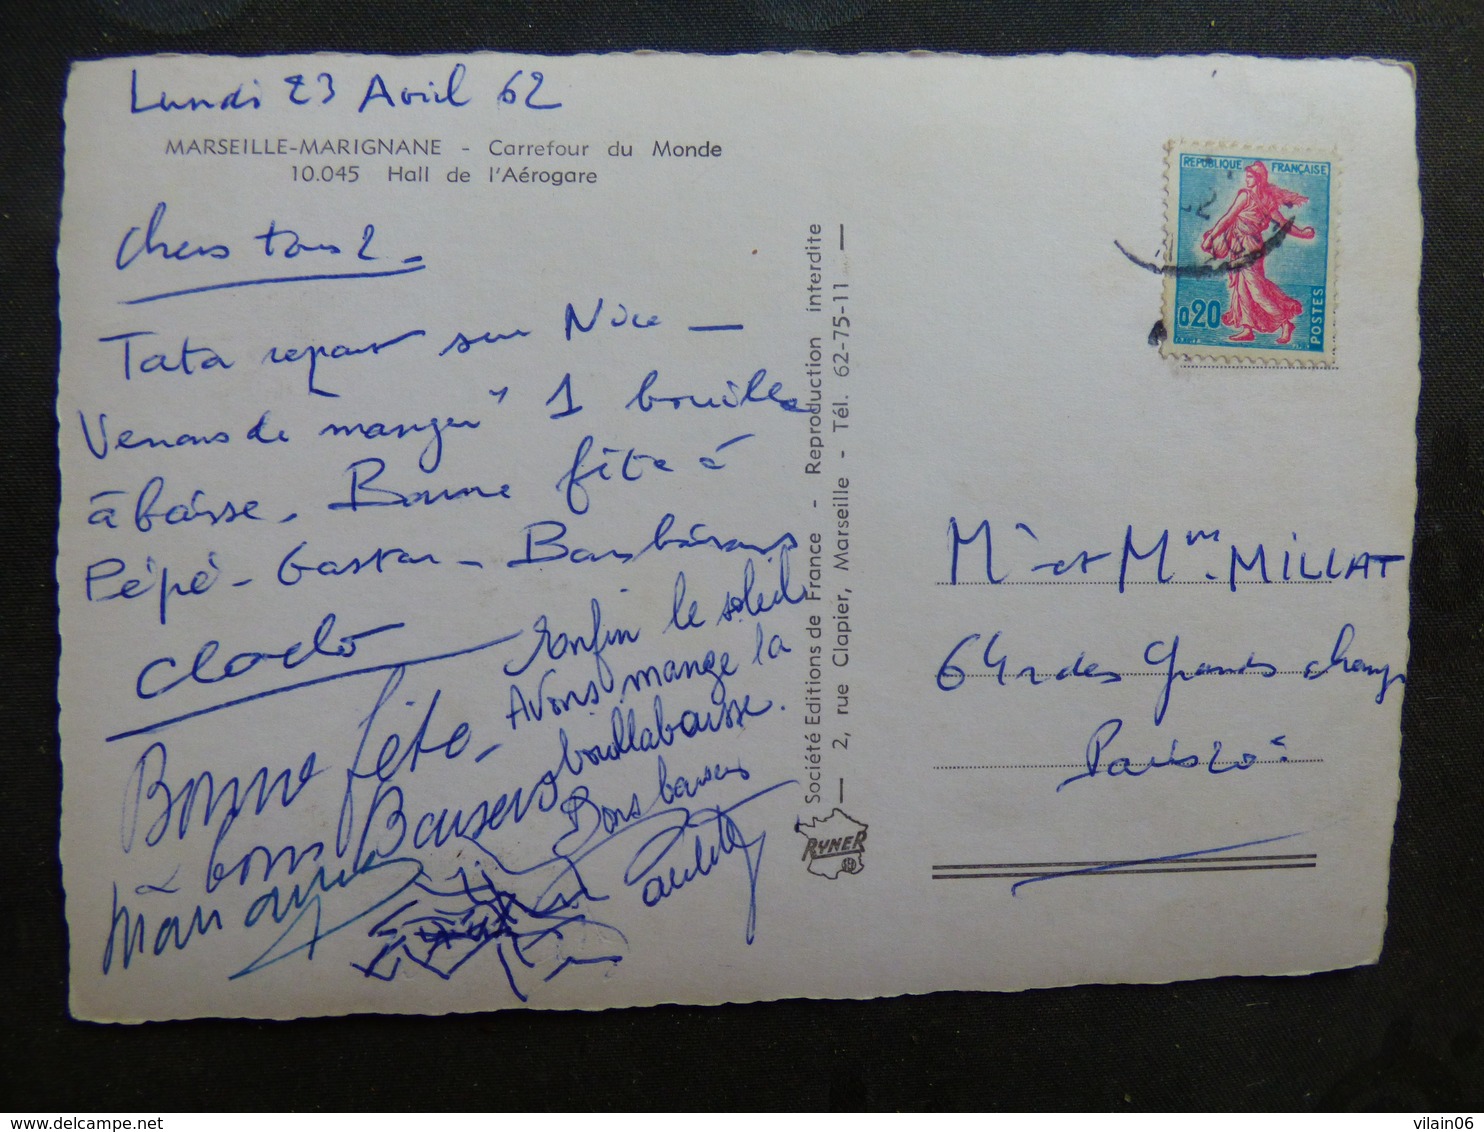 Lundi 23 Avril 62
MARSEILLE-MARIGNANE - Carrefour du Monde
10.045 Hall de l'Aérogare
Chers tous 2 -
Tata repart sur Nice —
Venons de manger 1 bouilla
à baisse. Bonne fête à
Pépé - Gaston - Bons baisers
Clado
Enfin le soleil
Avons mangé la
bouillabaisse.
Bons baisers
Paulette
Bonne fête -
& bons Baisers
Société Editions de France - Reproduction interdite
— 2, rue Clapier, Marseille - Tél. 62-75-11 —
RYNER
REPUBLIQUE FRANÇAISE
0,20
POSTES
Mr et Mme MILLAT
64 r des Grands champs
Paris 20è
delcampe.net
vilain06